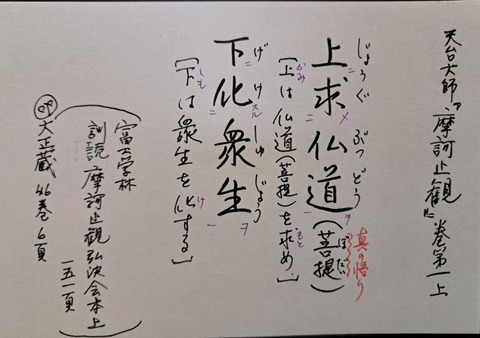 天台大師『摩訶止観』巻第一上
真の悟り
じょうぐ ぶつどう ぼだい
上求仏道(菩提)
[上は仏道(菩提)を求め、
げけ しゅじょう
下化衆生
[下は衆生を化する]
富士学林
訓読 摩訶止観弘決会本上
一五一頁
大正蔵46巻6頁